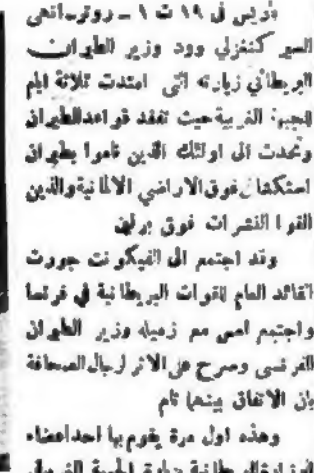 باريس في ١٩ ت ١ ـ روتر ـ انهى
السير كنغزلي وود وزير الطيران
البريطاني زيارته التي امتدت ثلاثة ايام
للجبهة الغربية حيث تفقد قواعد الطيران
وتحدث الى اولئك الذين قاموا بطيران
استكشافي فوق الاراضي الالمانية والذين
القوا النشرات فوق برلين
وقد اجتمع الى الفيكونت جورت
القائد العام للقوات البريطانية في فرنسا
واجتمع امس مع زميله وزير الطيران
الفرنسي وصرح على الاثر لرجال الصحافة
بان الاتفاق بينهما تام
وهذه اول مرة يقوم بها احد اعضاء
الوزارة البريطانية بزيارة الجبهة الغربية